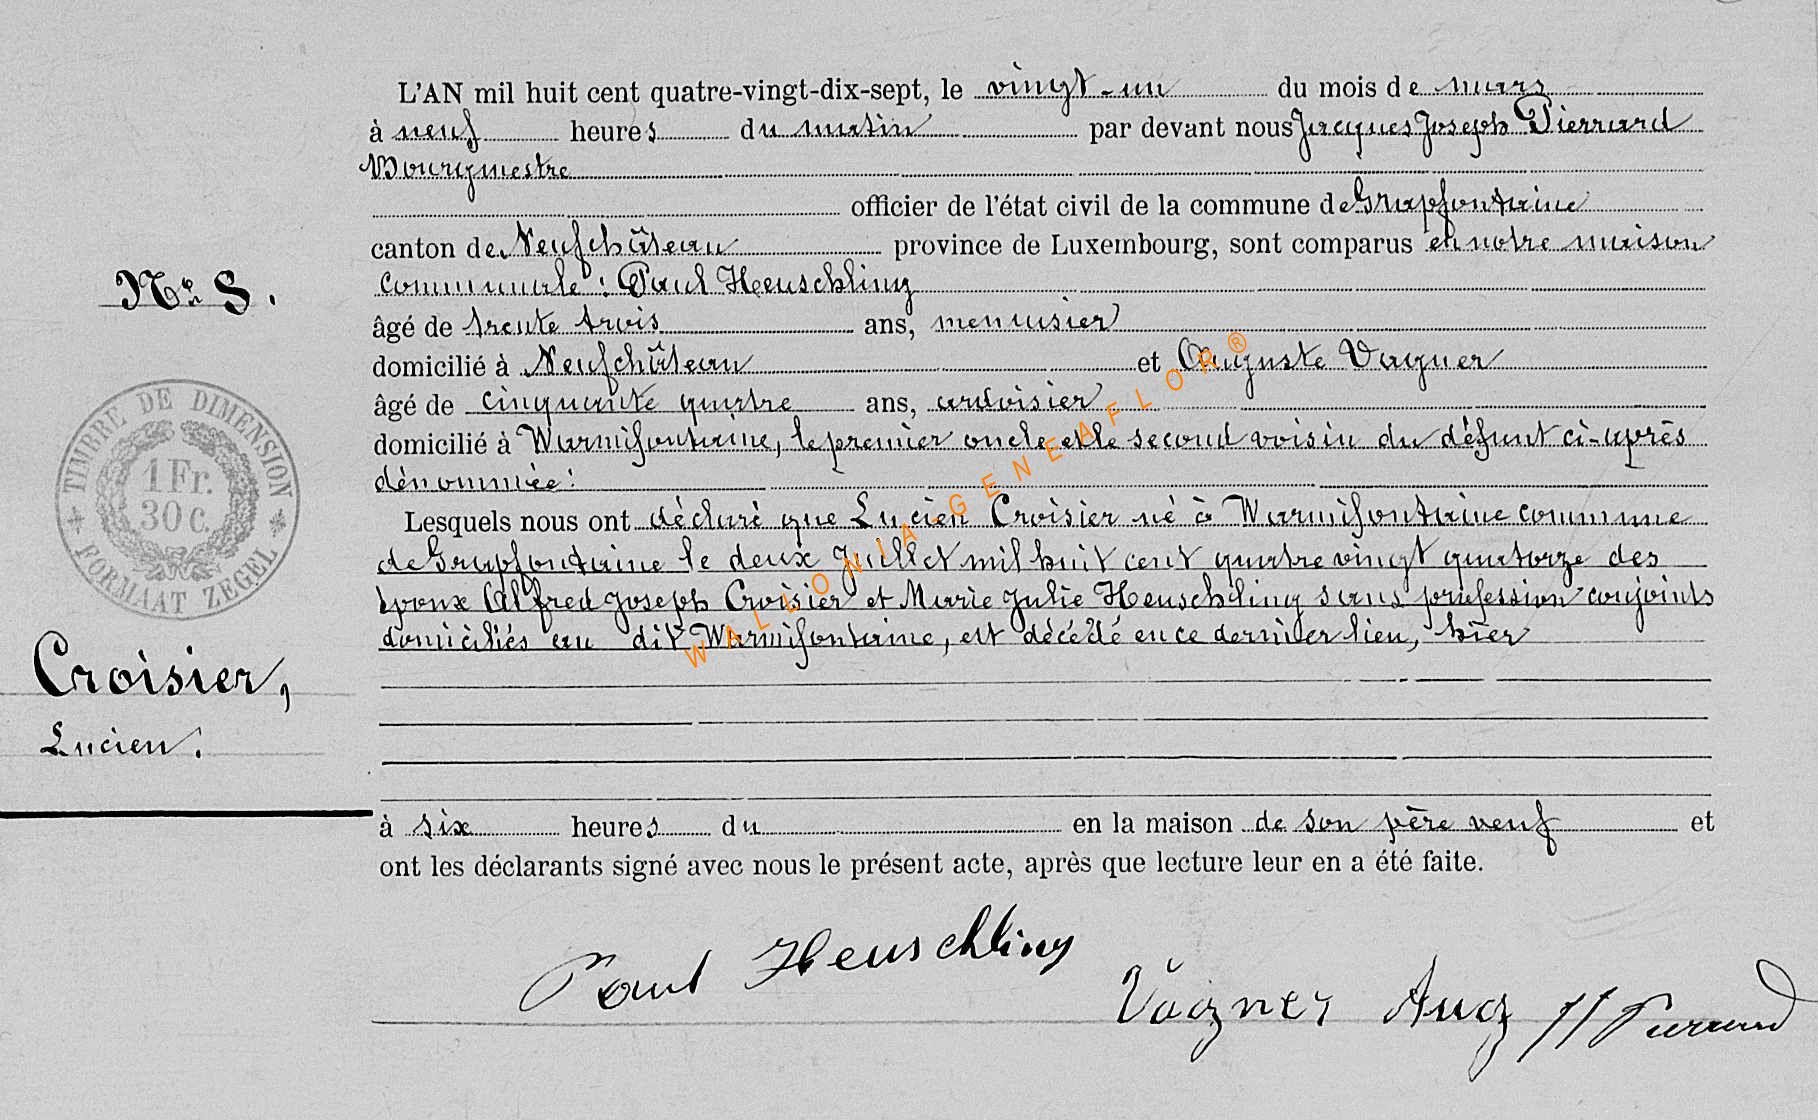 L'AN mil huit cent quatre-vingt-dix-sept, le vingt-un du mois de mars
à neuf heures du matin par devant nous Jacques Joseph Pierrard
Bourgmestre
officier de l'état civil de la commune de Grapfontaine
canton de Neufchâteau province de Luxembourg, sont comparus en notre maison
communale : Paul Heuschling
âgé de trente trois ans, menuisier
domicilié à Neufchâteau et Auguste Vagner
âgé de cinquante quatre ans, ardoisier
domicilié à Warmifontaine, le premier oncle et le second voisin du défunt ci-après
dénommée :
Lesquels nous ont déclaré que Lucien Croisier né à Warmifontaine commune
de Grapfontaine le deux Juillet mil huit cent quatre vingt quatorze des
époux Alfred Joseph Croisier et Marie Julie Heuschling sans profession conjoints
domiciliés au dit Warmifontaine, est décédé en ce dernier lieu, hier
à six heures du en la maison de son père veuf et
ont les déclarants signé avec nous le présent acte, après que lecture leur en a été faite.
Paul Heuschling
Vagner Aug JJ Pierrard
No 8.
TIMBRE DE DIMENSION
1 Fr.
30 c.
* FORMAAT ZEGEL *
Croisier,
Lucien.
WALLONIA-GENEAFLOR®